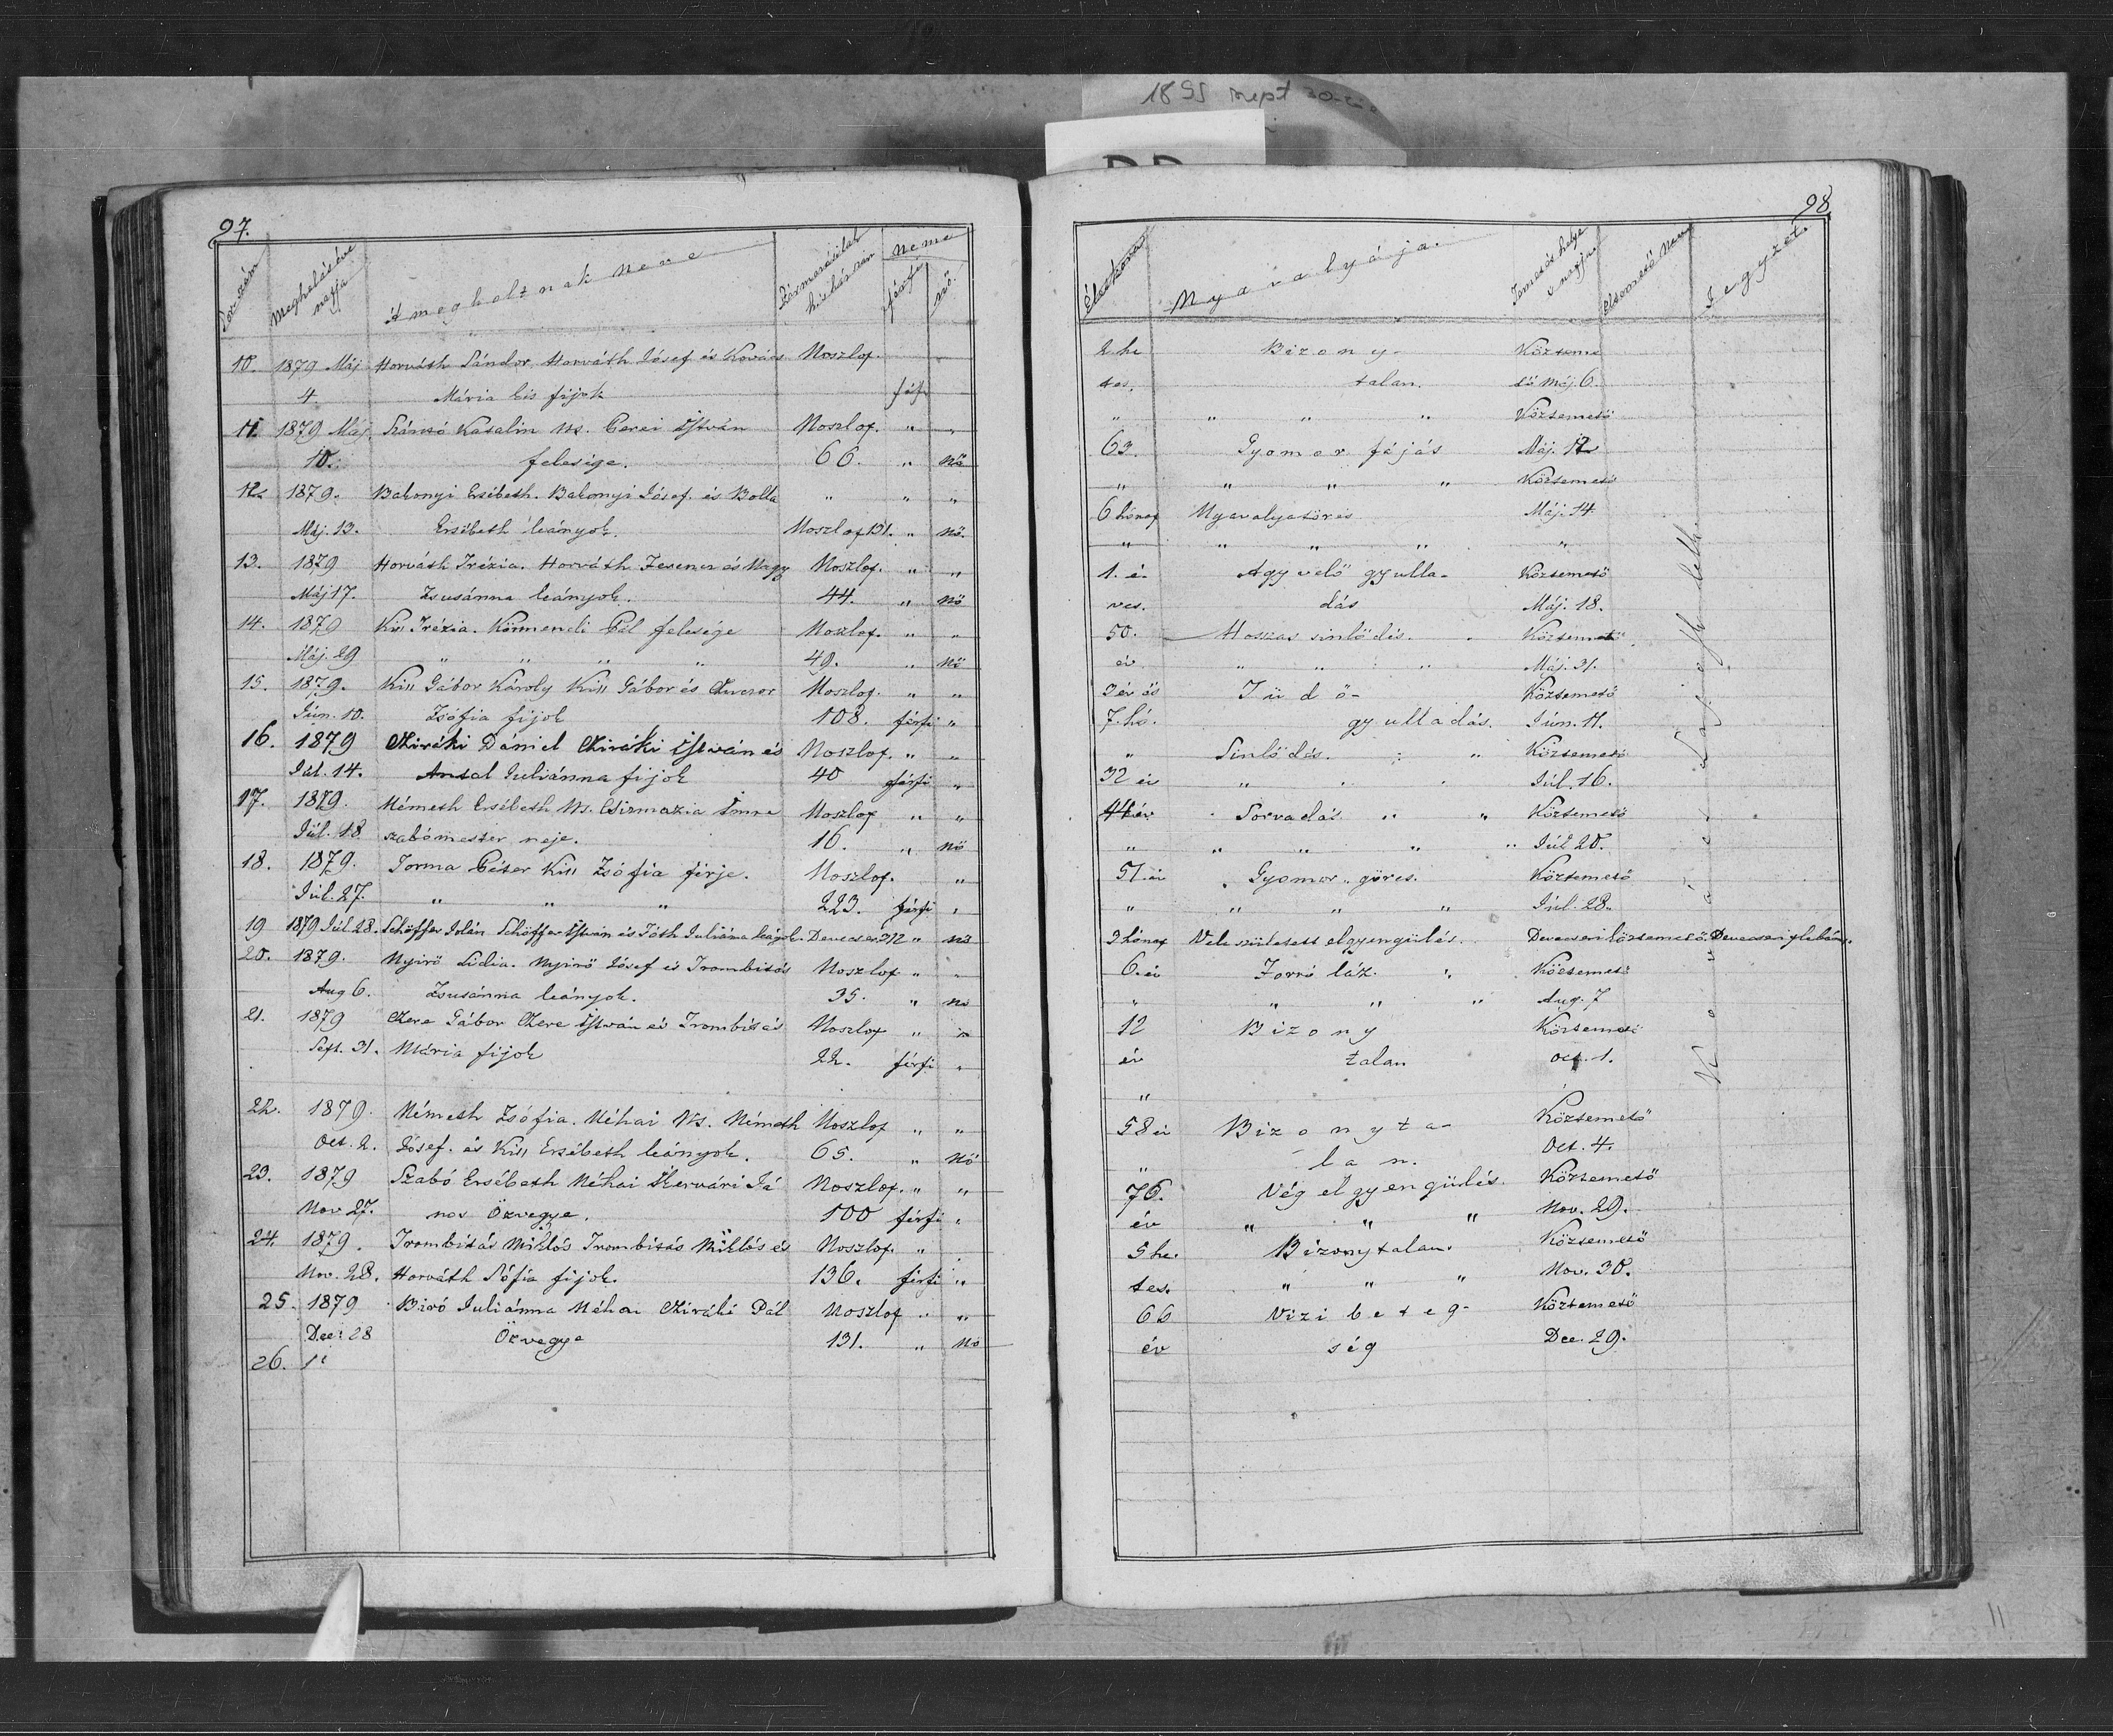 1895 sept 30
97.
Sorszám Meghalás éve napja A megholtnak neve Származási lak hely házszám neme férfi nő
10. 1879 Máj Horváth Sándor. Horváth Jósef és Kovács Noszlop.
4. Mária kis fijok férfi
11. 1879 Máj. Szántó Katalin Ns. Perei István Noszlop. " "
10. felesége. 66. " nő
12. 1879. Bakonyi Ersébeth. Bakonyi Jósef és Bolla " " "
Máj. 13. Ersébeth leányok. Noszlop 131. " nő.
13. 1879 Horváth Trézia. Horváth Ferencz és Nagy Noszlop. " "
Máj 17. Zsusánna leányok. 44. " nő
14. 1879 Kiss Trézia. Körmendi Pál felesége Noszlop. " "
Máj. 29 " " " " 49. " nő
15. 1879. Kiss Gábor Károly Kiss Gábor és Noszlop. " "
Jún. 10. Zsófia fijok 108. férfi "
16. 1879 Cziráki Dániel Cziráki István és Noszlop. " "
Júl. 14. Antal Juliánna fijok 40 férfi "
17. 1879. Németh Ersébeth Ns. Csizmazia Imre Noszlop " "
Júl. 18 szabómester neje. 16. " nő
18. 1879. Torma Péter Kiss Zsófia férje. Noszlop. "
Júl. 27. " " " 223. férfi "
19 1879 Júl 28. Schöffer Irlén Schöffer István és Tóth Juliána leányok Devecser 312 " nő
20. 1879. Nyirő Lidia. Nyirő Jósef és Trombitás Noszlop " "
Aug 6. Zsusánna leányok. 35. " nő
21. 1879 Czere Gábor Czere István és Trombitás Noszlop " "
Sept. 31. Mária fijok 22. férfi "
22. 1879. Németh Zsófia. Néhai Ns. Németh Noszlop " "
Oct. 2. Jósef. és Kiss Ersébeth leányok. 65. " nő
23. 1879 Szabó Ersébeth Néhai Kervári Já Noszlop. " "
Nov 27. nos Özvegye. 100 férfi "
24. 1879. Trombitás Miklós Trombitás Miklós és Noszlop. "
Nov. 28. Horváth Sófia fijok. 136. férfi "
25. 1879 Biró Juliánna Néhai Cziráki Pál Noszlop " "
Dec. 28 Özvegye 131. " nő
26. 1
98
Életkora Nyavalyája. Temetés helye s napja Eltemető Neve Jegyzet.
2 he Bizony- Közteme
tes. talan. tő máj. 6.
" " " " Köztemető
63. Gyomor fájás Máj. 12
" " " " Köztemető
6 hónap Nyavalyatörés Máj. 14
" " " " "
1. é- Agyvelő gyulla- Köztemető
ves. dás Máj. 18.
50. Hosszas sinlődés. Köztemető
év " " " Máj. 31.
3 év és Tüdő- Köztemető
7. hó. gyulladás. Jún. 11.
" Sinlődés. " Köztemető
32 év " Júl. 16.
44 év Sorvadás " " Köztemető
" " " " " Júl 20.
51. év Gyomor görcs. Köztemető
" " " " Júl. 28.
3 hónap Vele született elgyengülés. Devecseri köztemető. Devecseri plébános.
6. év Forró láz. " Köztemető
" " " " Aug. 7
12 Bizony Köztemető
év talan Oct. 1.
"
58 év Bizonyta- Köztemető
" lan. Oct. 4.
76. Vég elgyengülés. Köztemető
év " " " Nov. 29.
5 he. Bizonytalan. Köztemető
tes. " " " Nov. 30.
66 Vizi beteg- Köztemető
év ség Dec. 29.